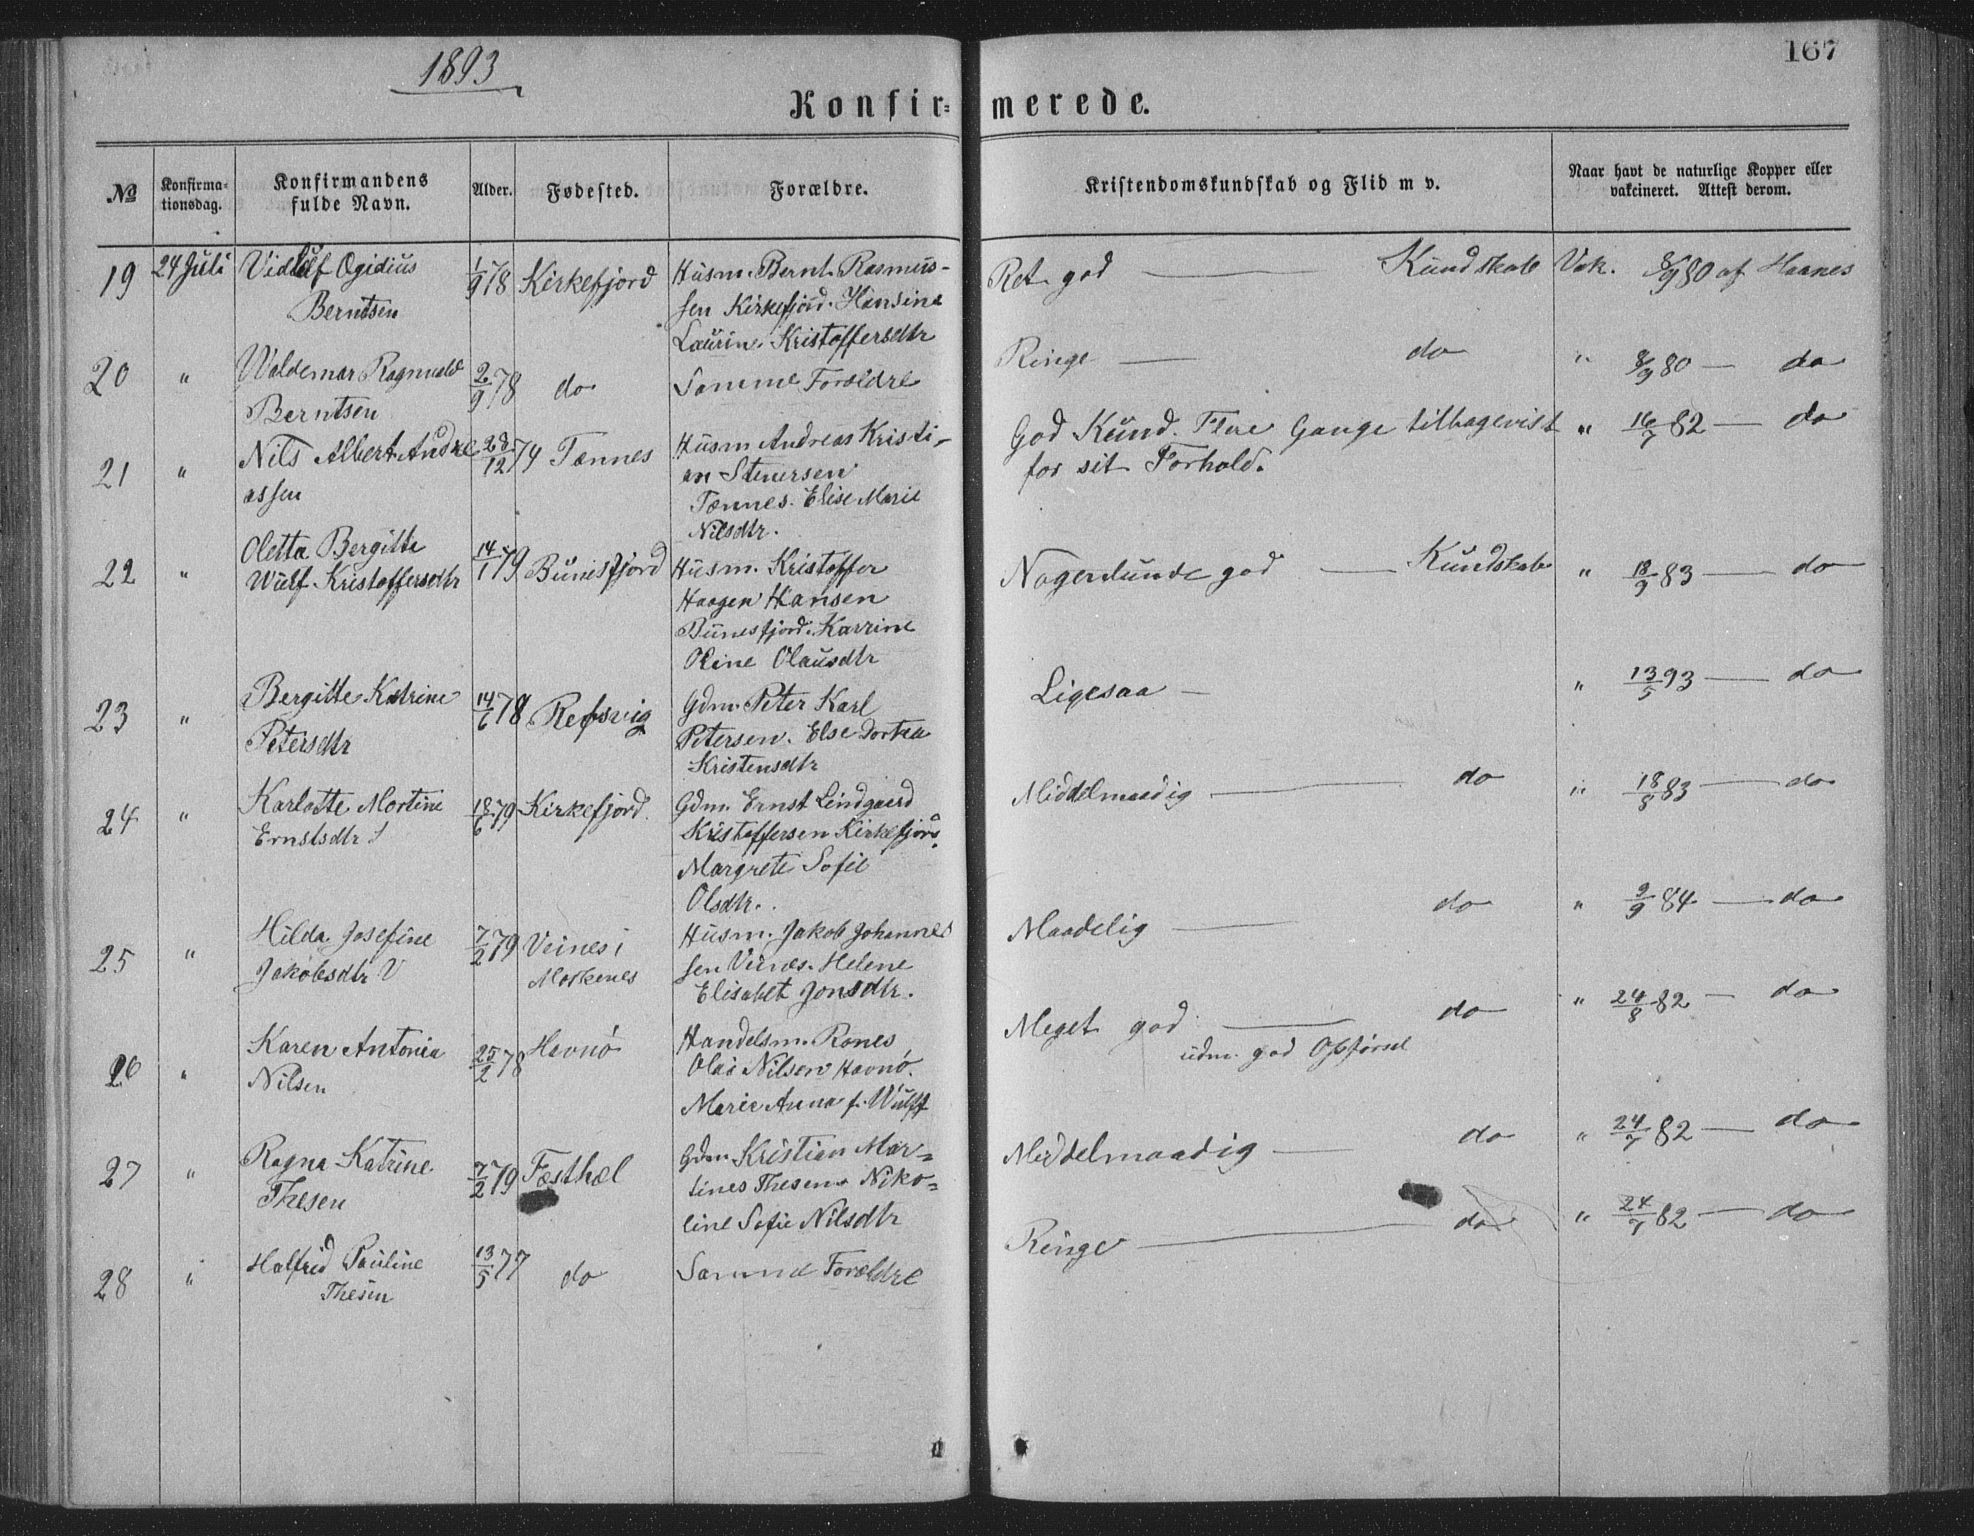 1893
167
Konfir-
merede.
No
Konfirma-
tionsdag.
Konfirmandens
fulde Navn.
Alder.
Fødested.
Forældre.
Kristendomskundskab og Flid m v.
Naar havt de naturlige Kopper eller
vakcineret. Attest derom.
19 24 Juli Vidluf Ogidius 1/9 78 Kirkefjord Husm. Bernt Rasmus- Ret god — Kundskab Vak. 8/9 80 af Haanes
Berntsen sen Kirkefjord. Hansine
Laurine Kristoffersdtr
20 " Valdemar Ragnvald 2/9 78 do Samme Forældre Ringe — do " 8/9 80 — do
Berntsen
21 " Nils Albert Andre 28/12 74 Tennes Husm Andreas Kristi- God Kund. Flere Gange tilbagevist " 16/7 82 — do
assen an Stenersen for sit Forhold.
Tennes. Elise Marie
Nilsdtr.
22 " Oletta Bergitte 14/1 79 Bunesfjord Husm. Kristoffer Nogenlunde god — Kundskab " 18/9 83 — do
Wulf Kristoffersdtr Haagen Hansen
Bunesfjord. Karrine
Oline Olausdtr
23 " Bergitte Katrine 14/6 78 Refsvig Gdm. Peter Karl Ligesaa — " 13/5 93 — do
Petersdtr Petersen. Else Dortea
Kristensdtr
24 " Karlotte Mortine 18/6 79 Kirkefjord. Gdm. Ernst Lindgaard Middelmaadig — do " 18/8 83 — do
Ernstsdtr Kristoffersen Kirkefjord.
Margrete Sofie
Olsdtr.
25 " Hilda Josefine 7/2 79 Veines i Husm. Jakob Johannes Maadelig — do " 9/9 84 — do
Jakobsdtr Moskenes sen Veines. Helene
Elisabet Jonsdtr.
26 " Karen Antonia 25/2 78 Havnø Handelsm. Rones Meget god — do " 24/8 82 — do
Nilsen Olai Nilsen Havnø. udm. god Opførsel
Marie Anna f. Wulff
27 " Ragna Katrine 7/2 79 Festhæl Gdm Kristian Mar- Middelmaadig — do " 24/7 82 — do
Thesen tines Thesen Niko-
line Sofie Nilsdtr
28 " Halfrid Pauline 13/5 77 do Samme Forældre Ringe — do " 24/7 82 — do
Thesen